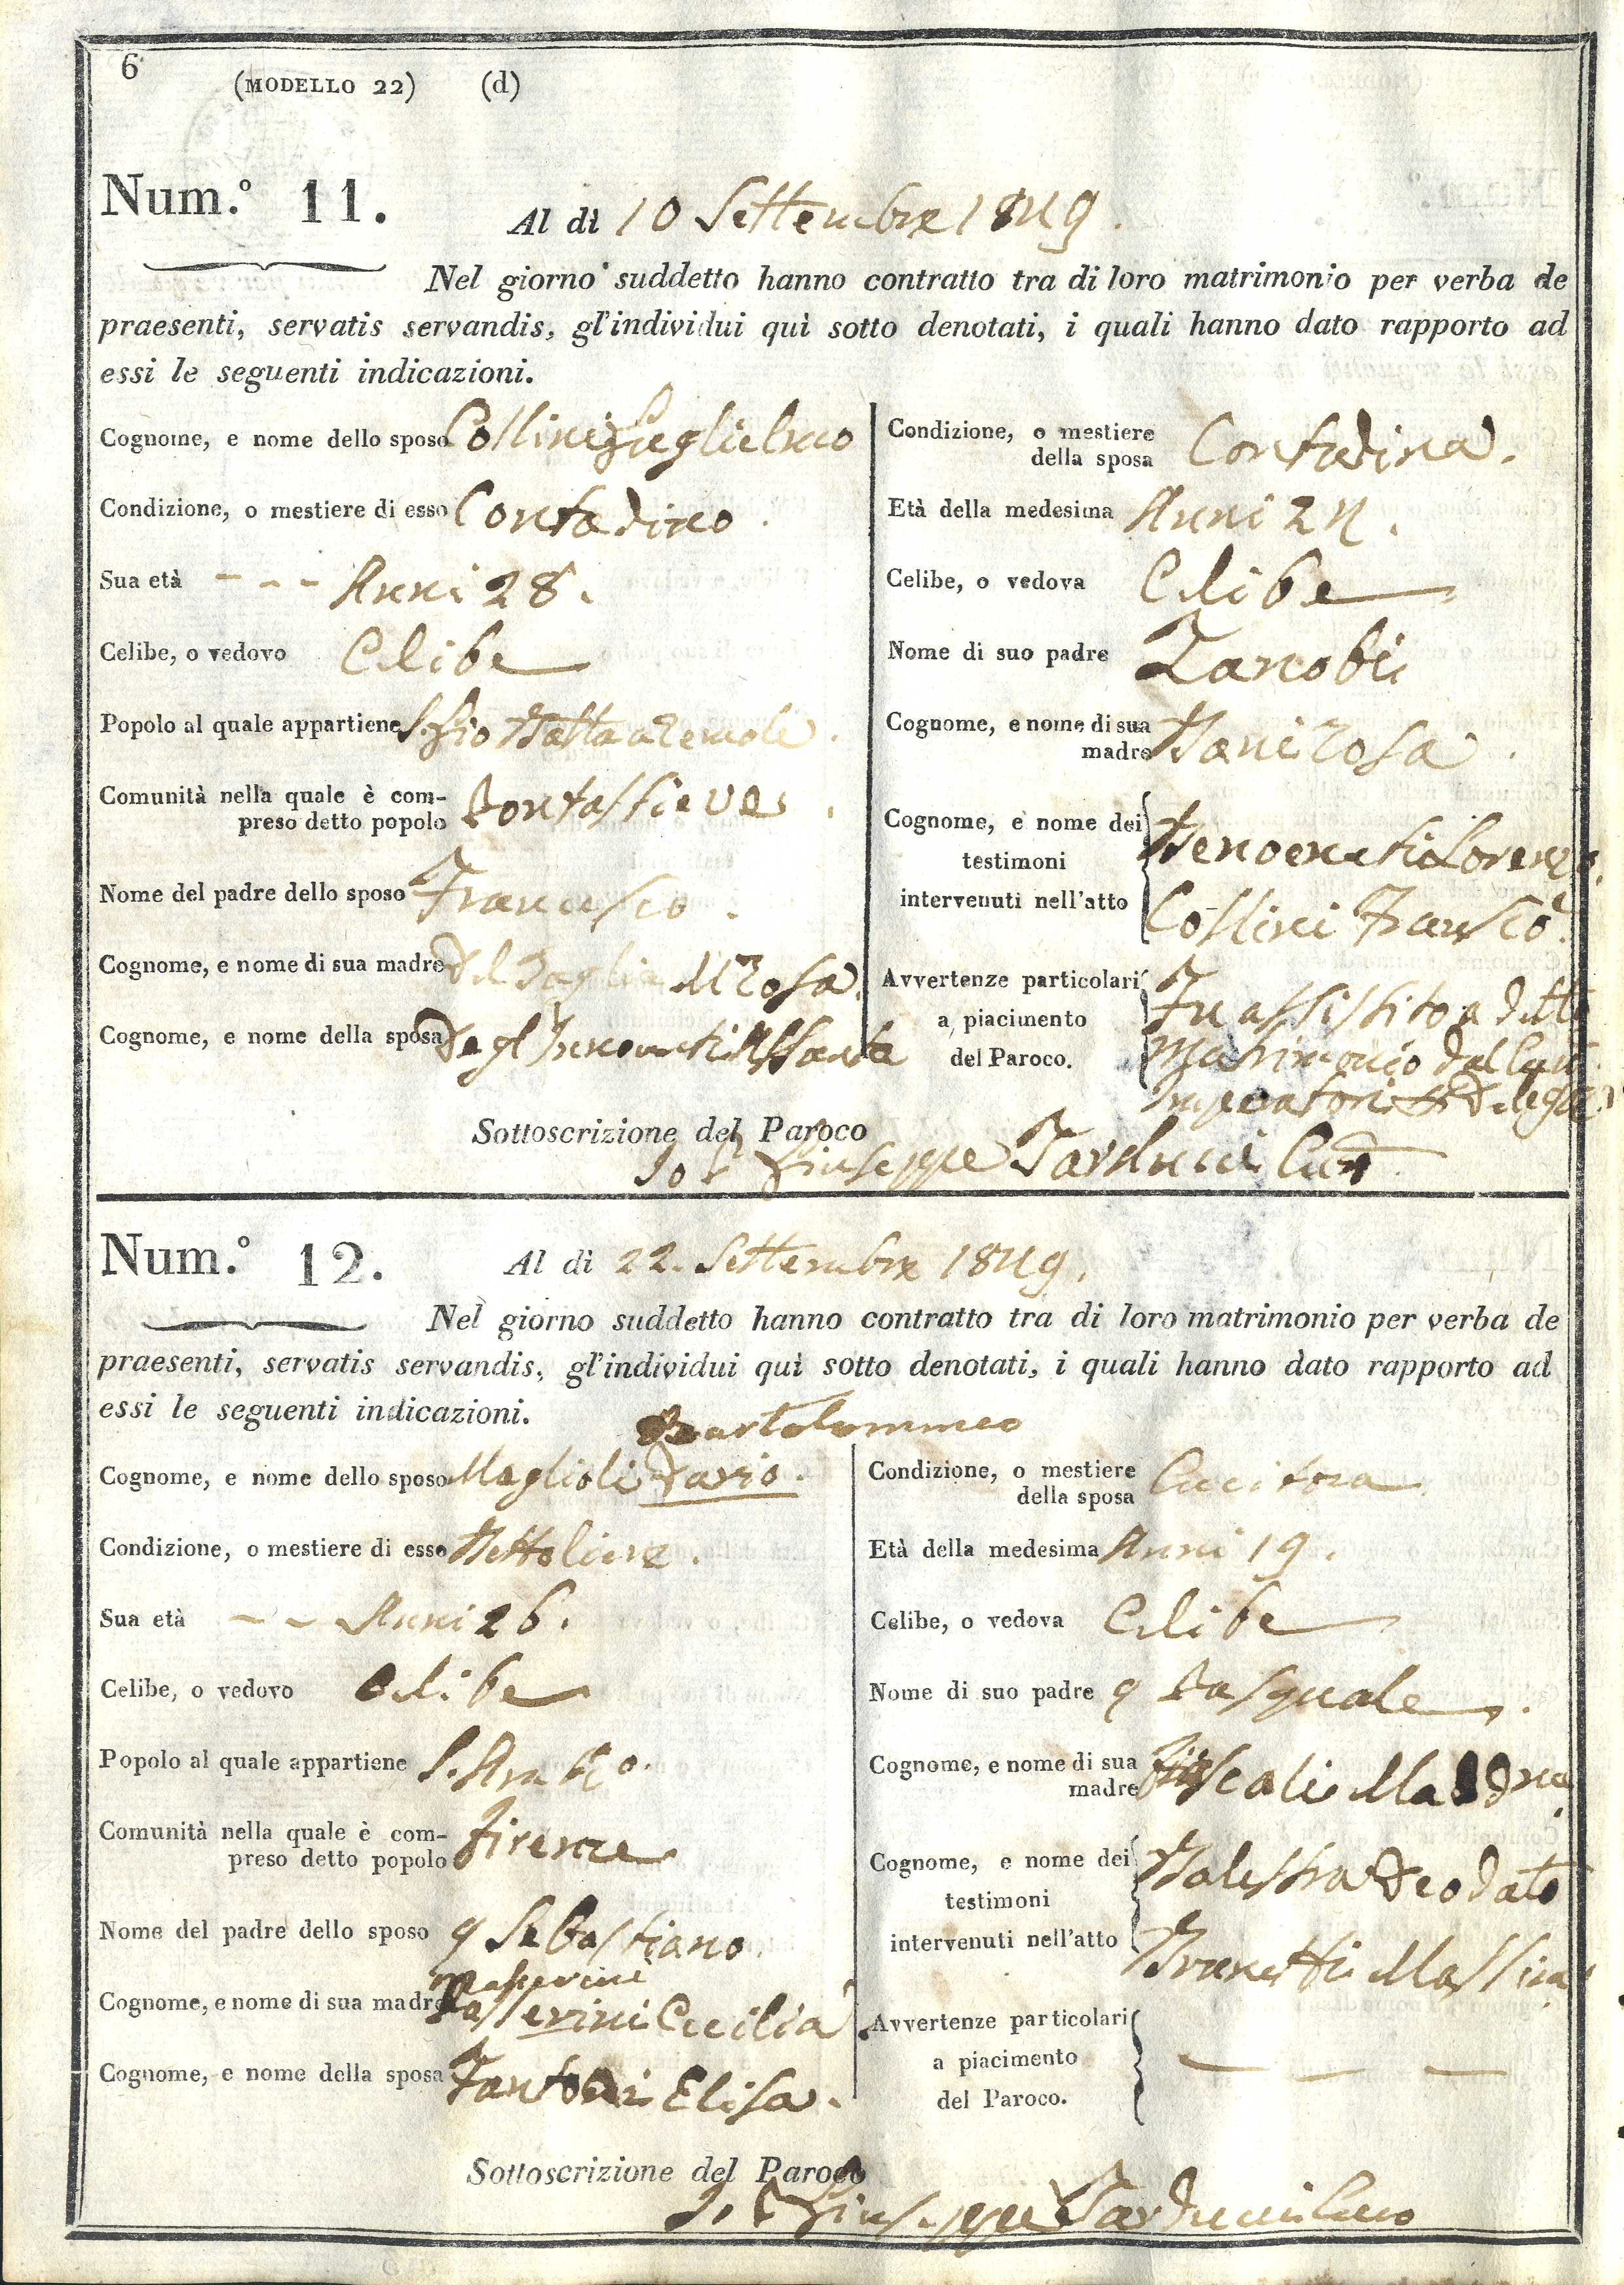 6
(MODELLO 22) (d)
Num.º 11.
Al dì 10 Settembre 1849.
Nel giorno suddetto hanno contratto tra di loro matrimonio per verba de
praesenti, servatis servandis, gl'individui quì sotto denotati, i quali hanno dato rapporto ad
essi le seguenti indicazioni.
Cognome, e nome dello sposo Collini Guglielmo
Condizione, o mestiere di esso Contadino.
Sua età - - - Anni 28.
Celibe, o vedovo Celibe
Popolo al quale appartiene S. Gio Batta a Remole.
Comunità nella quale è com-
preso detto popolo Pontassieve.
Nome del padre dello sposo Francesco.
Cognome, e nome di sua madre Del Baglia M Rosa.
Cognome, e nome della sposa Degl'Innocenti Assunta
Condizione, o mestiere
della sposa Contadina.
Età della medesima Anni 24.
Celibe, o vedova Celibe
Nome di suo padre Zanobi
Cognome, e nome di sua
madre Nani Rosa.
Cognome, e nome dei
testimoni
intervenuti nell'atto
Benvenuti Lorenzo
Collini Franco
Avvertenze particolari
a piacimento
del Paroco.
Fu assistito a detto
Matrimonio dal
Imperatori
Sottoscrizione del Paroco
Io P Giuseppe Tarducci Cur
Num.º 12.
Al dì 22. Settembre 1849.
Nel giorno suddetto hanno contratto tra di loro matrimonio per verba de
praesenti, servatis servandis, gl'individui quì sotto denotati, i quali hanno dato rapporto ad
essi le seguenti indicazioni.
Bartolommeo
Cognome, e nome dello sposo Maglioli Dario.
Condizione, o mestiere di esso
Sua età - - Anni 26.
Celibe, o vedovo Celibe
Popolo al quale appartiene S. Ambro.
Comunità nella quale è com-
preso detto popolo Firenze
Nome del padre dello sposo q Sebastiano.
Cognome, e nome di sua madre Passerini Cecilia
Cognome, e nome della sposa Fantoni Elisa.
Condizione, o mestiere
della sposa Cucitora
Età della medesima Anni 19.
Celibe, o vedova Celibe
Nome di suo padre q Pasquale.
Cognome, e nome di sua
madre Fiscali Madda
Cognome, e nome dei
testimoni
intervenuti nell'atto
Balestra Deodato
Brunetti Massimo
Avvertenze particolari
a piacimento
del Paroco.
— — —
Sottoscrizione del Paroco
Io P Giuseppe Tarducci Curo